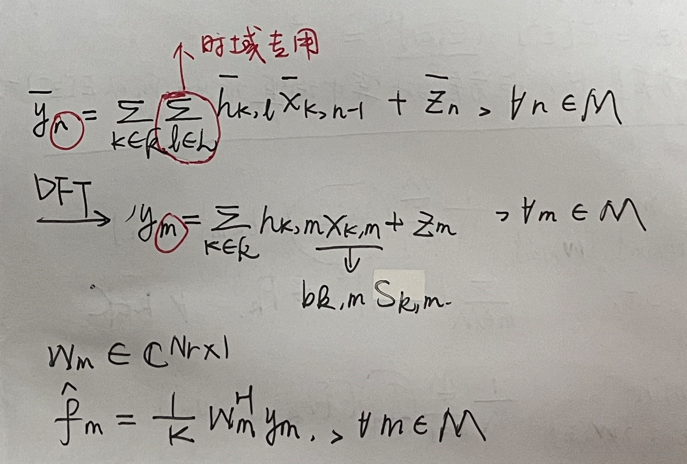 时域专用
ȳn = Σk∈K Σl∈L h̄k,l x̄k,n-l + z̄n , ∀n ∈ M
DFT→ , ym = Σk∈K hk,m xk,m + zm , ∀m ∈ M
↓
bk,m Sk,m.
Wm ∈ ℂNr×1
f̂m = 1/K WmH ym. , ∀m ∈ M